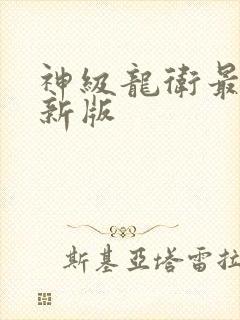 神級龍衛最
新版
斯基亞塔雷拉